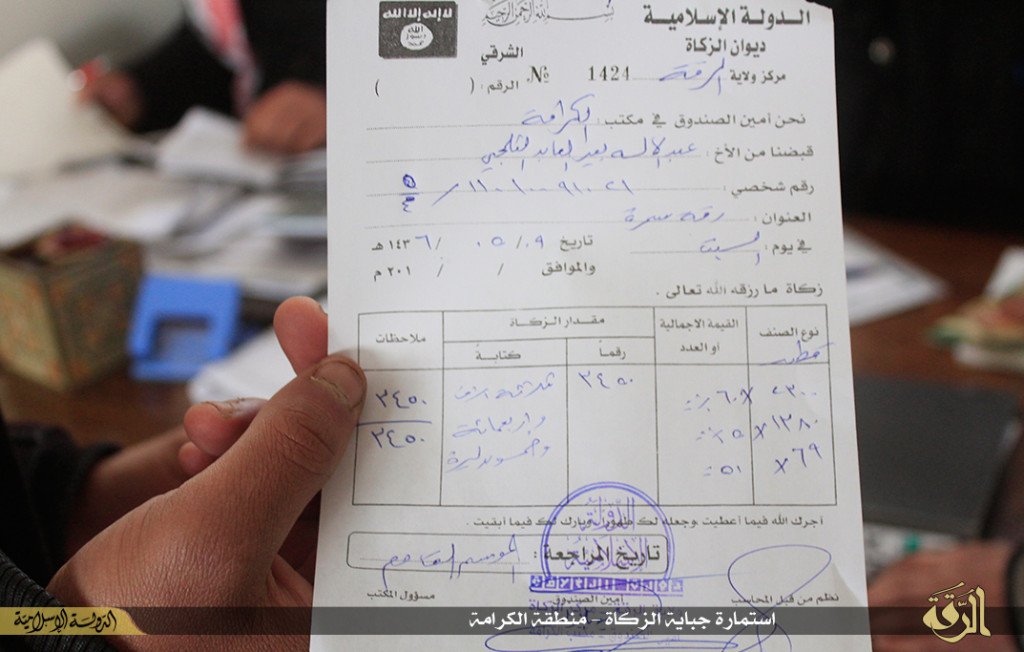 بسم الله الرحمن الرحيم
لا إله إلا الله
الله
رسول
محمد
الدولة الإسلامية
ديوان الزكاة
مركز ولاية الرقة
الشرقي
№ 1424
الرقم : ( )
نحن أمين الصندوق في مكتب : الكرامة
قبضنا من الأخ :
رقم شخصي :
العنوان : رقة سمرة
في يوم : السبت
تاريخ ٠٩ / ٠٥ / ١٤٣٦ هـ
والموافق / / ٢٠١ م
زكاة ما رزقه الله تعالى .
نوع الصنف
القيمة الاجمالية أو العدد
مقدار الزكاة
رقماً
كتابةً
ملاحظات
٢٣٠٠ X ٦٠
٣٤٥٠
ثلاثة الاف
٣٤٥٠
١٣٨٠ X
واربعمائة
٣٤٥٠
٦٩ X
وخمسون ليرة
آجرك الله فيما أعطيت وجعله لك طهوراً وبارك لك فيما أبقيت .
تاريخ المراجعة : الموسم القادم
نظم من قبل المحاسب
أمين الصندوق
مسؤول المكتب
الرقة
استمارة جباية الزكاة - منطقة الكرامة
الدولة الإسلامية